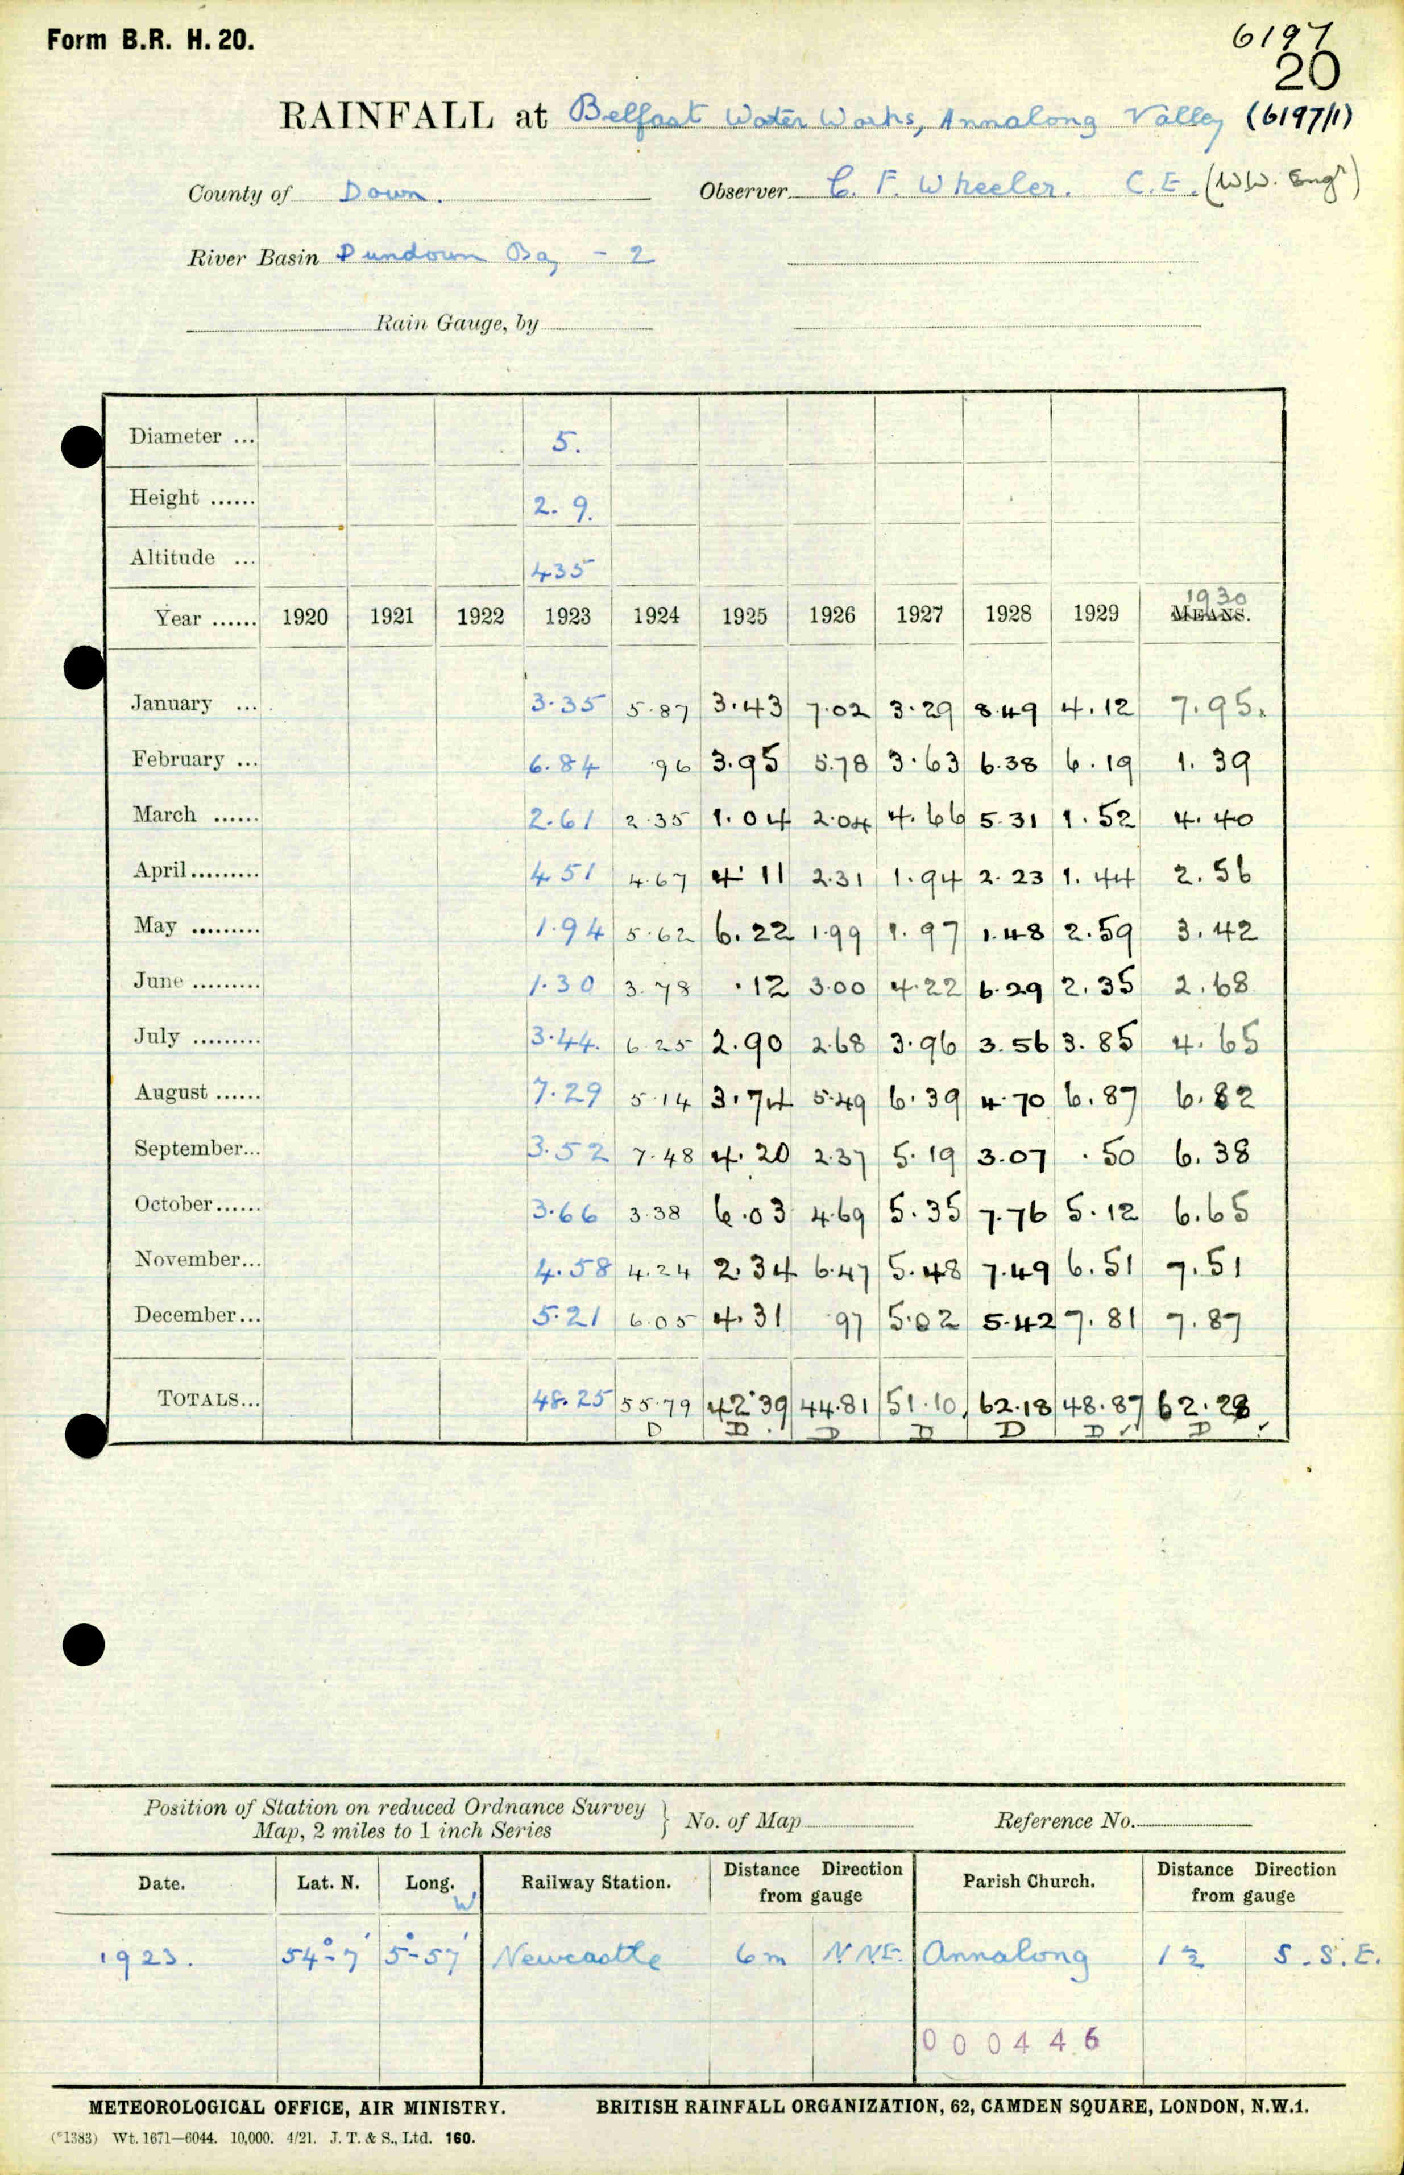 Form B.R. H. 20.
6197
20
RAINFALL at Belfast Water Works, Annalong Valley (6197/1)
County of Down. Observer C. F. Wheeler. C.E. (W.W. Engr)
River Basin Dundrum Bay - 2
Rain Gauge, by
Diameter ... 5.
Height ...... 2. 9.
Altitude ... 435
Year ...... 1920 1921 1922 1923 1924 1925 1926 1927 1928 1929 MEANS. 1930
January ... 3.35 5.87 3.43 7.02 3.29 8.49 4.12 7.95.
February ... 6.84 .96 3.95 5.78 3.63 6.38 6.19 1.39
March ...... 2.61 2.35 1.04 2.04 4.66 5.31 1.52 4.40
April ......... 4.51 4.67 4.11 2.31 1.94 2.23 1.44 2.56
May ......... 1.94 5.62 6.22 1.99 1.97 1.48 2.59 3.42
June ......... 1.30 3.78 .12 3.00 4.22 6.29 2.35 2.68
July ......... 3.44. 6.25 2.90 2.68 3.96 3.56 3.85 4.65
August ...... 7.29 5.14 3.74 5.49 6.39 4.70 6.87 6.82
September... 3.52 7.48 4.20 2.37 5.19 3.07 .50 6.38
October ...... 3.66 3.38 6.03 4.69 5.35 7.76 5.12 6.65
November... 4.58 4.24 2.34 6.47 5.48 7.49 6.51 7.51
December... 5.21 6.05 4.31 .97 5.02 5.42 7.81 7.87
TOTALS... 48.25 55.79 42.39 44.81 51.10 62.18 48.87 62.28
D D D D D D ✓ D ✓
Position of Station on reduced Ordnance Survey
Map, 2 miles to 1 inch Series } No. of Map Reference No.
Date. Lat. N. Long. W Railway Station. Distance Direction from gauge Parish Church. Distance Direction from gauge
1923. 54°-7' 5°-57' Newcastle 6m N.N.E. Annalong S.S.E.
000446
METEOROLOGICAL OFFICE, AIR MINISTRY. BRITISH RAINFALL ORGANIZATION, 62, CAMDEN SQUARE, LONDON, N.W.1.
(*1383) Wt. 1671—6044. 10,000. 4/21. J. T. & S., Ltd. 160.